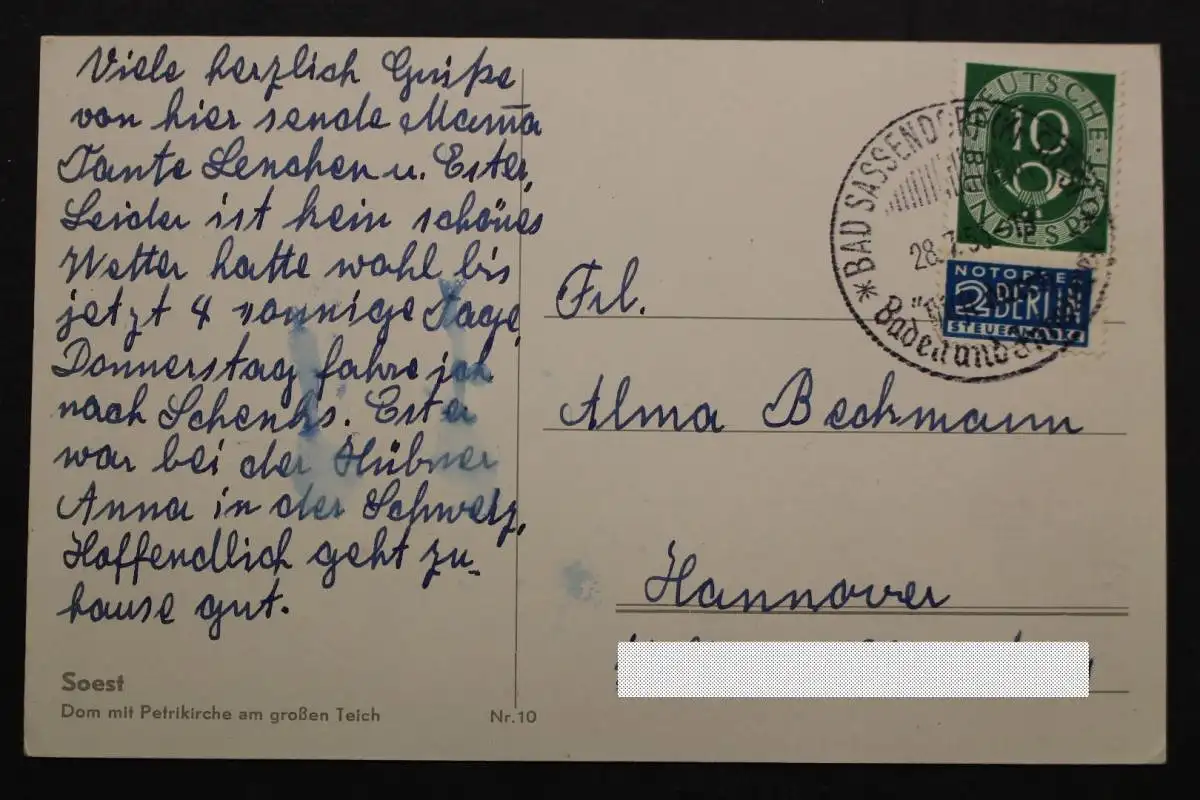 Viele herzlich Grüße
von hier sende Mama
Tante Lenchen u. Ester,
Leider ist kein schönes
Wetter hatte wohl bis
jetzt 4 sonnige Tage,
Donnerstag fahre ich
nach Schenks. Ester
war bei der Hübner
Anna in der Schweiz,
Hoffendlich geht zu-
hause gut.
Soest
Dom mit Petrikirche am großen Teich
Nr. 10
DEUTSCHE
BUNDESPOST
10
* BAD SASSENDORF
28.7.
Baden und
NOTOPFER
2 BERLIN
STEUERMARKE
Frl.
Alma Beckmann
Hannover